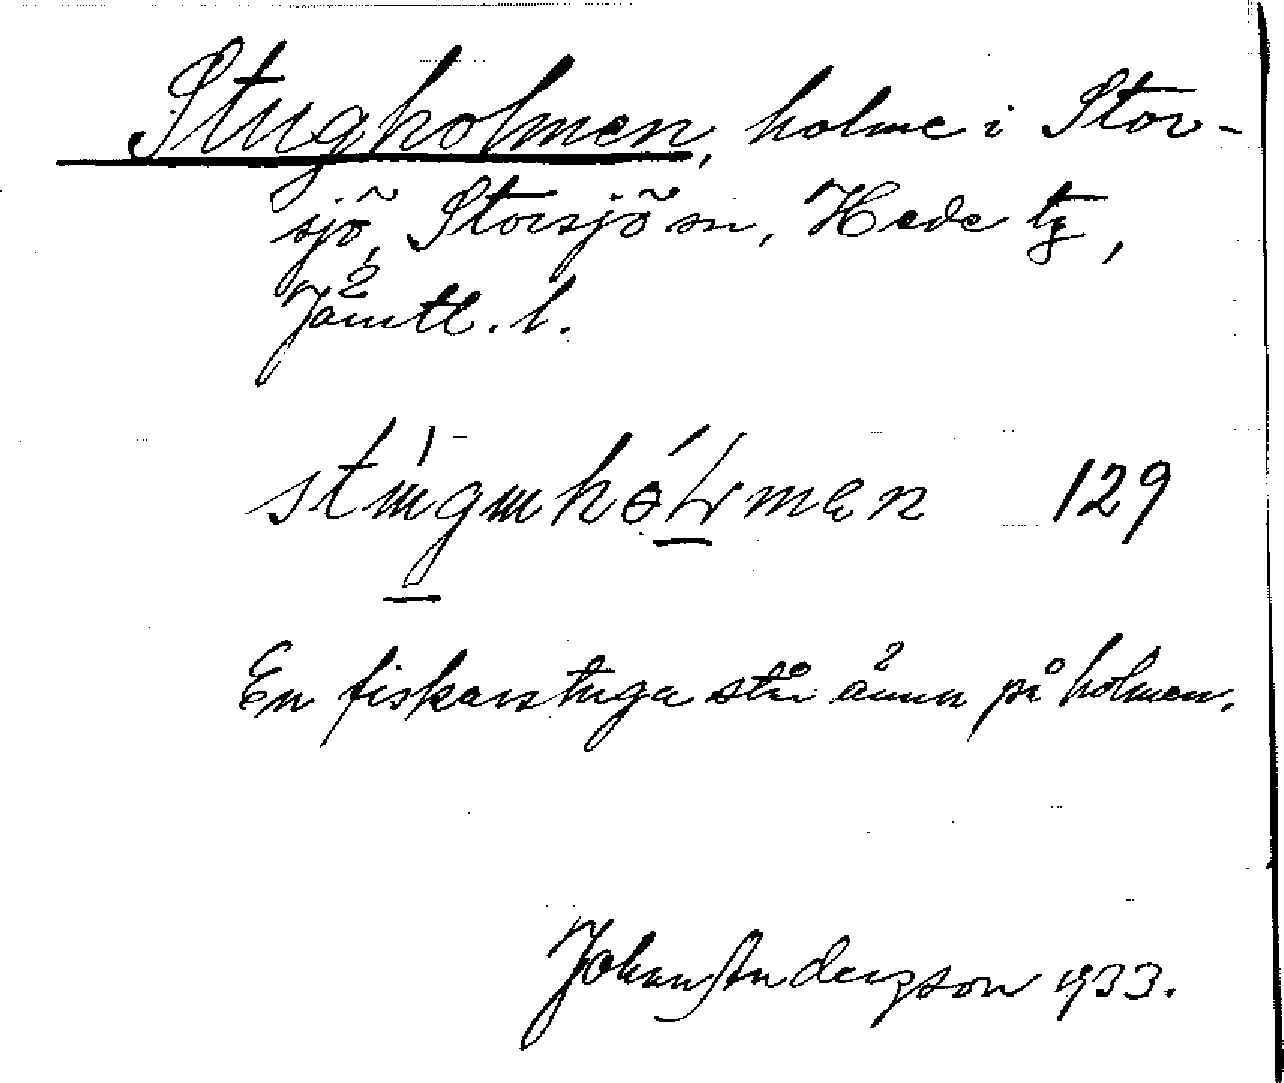 Stugholmen, holme i Stor-
sjö, Storsjö sn, Hede tg,
Jämtl. l.
129
En fiskarstuga står ännu på holmen.
Johan Andersson 1933.